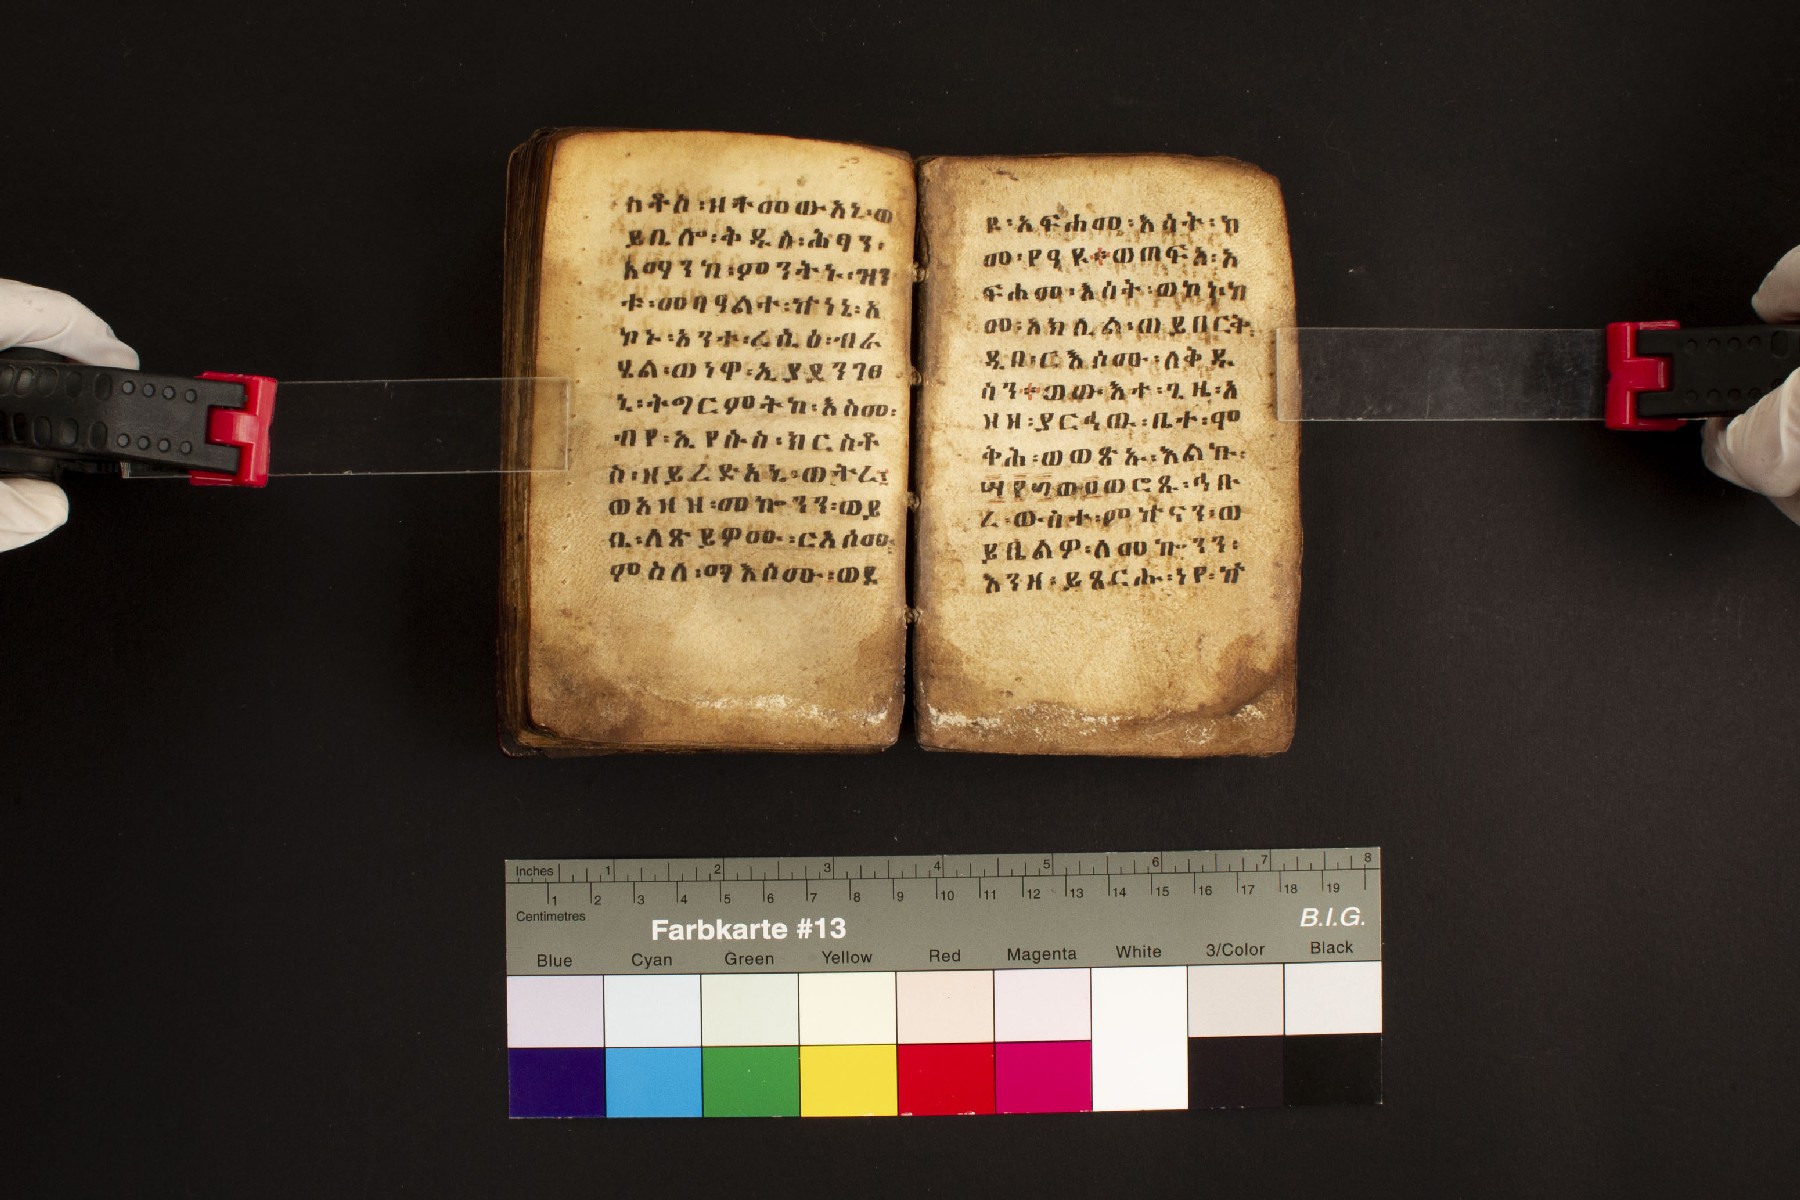 ከቶስ፡ዘተመውአኒ፡ወ
ይቤሎ፡ቅዱስ፡ሕፃን፡
አማንከ፡ምንትኑ፡ዝን
ቱ፡መባዓልተ፡ዀነኒ፡አ
ኮኑ፡አንተ፡ረሲዕ፡ብራ
ሂል፡ወነዋ፡ኢያደንገፀ
ኒ፡ትግርምትከ፡እስመ፡
ብየ፡ኢየሱስ፡ክርስቶ
ስ፡ዘይረድአኒ፡ወትረ፤
ወአዘዘ፡መኰንን፡ወይ
ቤ፡ለጽይዎሙ፡ርእሰሙ፡
ምስለ፡ማእሰሙ፡ወደ
ዩ፡አፍሐመ፡እሳት፡ከ
መ፡የዓዩ፡ወጠፍአ፡አ
ፍሐመ፡እሳት፡ወኮነ፡ከ
መ፡አክሊል፡ወይበርት፡
ዲበ፡ርእሰሙ፡ለቅዱ
ሳን፡ወውእተ፡ጊዜ፡አ
ዘዘ፡ያርኅዉ፡ቤተ፡ሞ
ቅሕ፡ወወጽኡ፡እልኩ፡
ወሮጹ፡ኅቡ
ረ፡ውስተ፡ምዀናን፡ወ
ይቤልዎ፡ለመኰንን፡
እንዘ፡ይጼርሑ፡ነየ፡ዀ
Inches 1 2 3 4 5 6 7 8
1 2 3 4 5 6 7 8 9 10 11 12 13 14 15 16 17 18 19
Centimetres
Farbkarte #13
B.I.G.
Blue Cyan Green Yellow Red Magenta White 3/Color Black